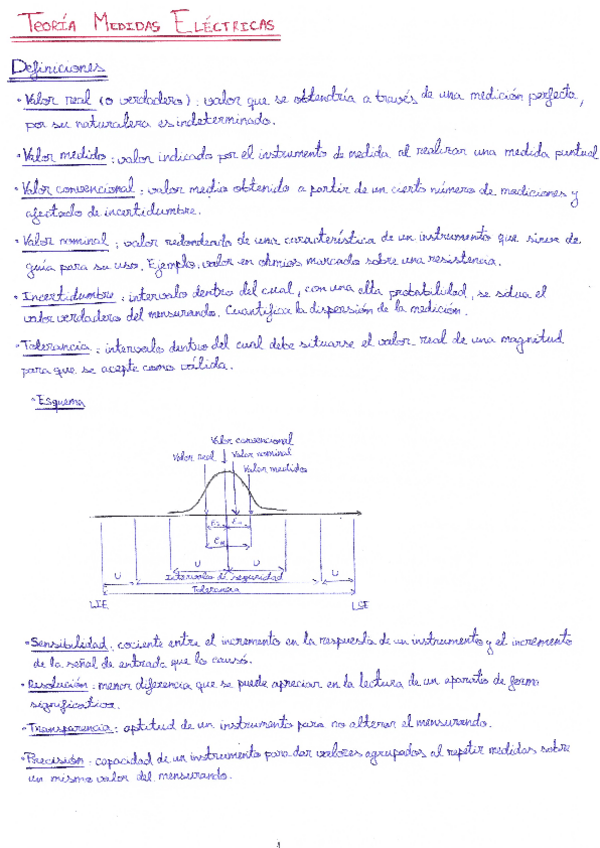 TEORÍA MEDIDAS ELÉCTRICAS
Definiciones
• Valor real (o verdadero): valor que se obtendría a través de una medición perfecta,
por su naturaleza es indeterminado.
• Valor medido: valor indicado por el instrumento de medida al realizar una medida puntual
• Valor convencional: valor medio obtenido a partir de un cierto número de mediciones y
afectado de incertidumbre.
• Valor nominal: valor redondeado de una característica de un instrumento que sirve de
guía para su uso. Ejemplo: valor en ohmios marcado sobre una resistencia.
• Incertidumbre: intervalo dentro del cual, con una alta probabilidad, se situa el
valor verdadero del mensurando. Cuantifica la dispersión de la medición.
• Tolerancia: intervalo dentro del cual debe situarse el valor real de una magnitud
para que se acepte como válida.
• Esquema
Valor convencional
Valor real Valor nominal
Valor medidos
U U
U Intervalo de seguridad U
Tolerancia
LIE LSE
• Sensibilidad: cociente entre el incremento en la respuesta de un instrumento y el incremento
de la señal de entrada que lo causó.
• Resolución: menor diferencia que se puede apreciar en la lectura de un aparato de forma
significativa.
• Transparencia: aptitud de un instrumento para no alterar el mensurando.
• Precisión: capacidad de un instrumento para dar valores agrupados al repetir medidas sobre
un mismo valor del mensurando.
1